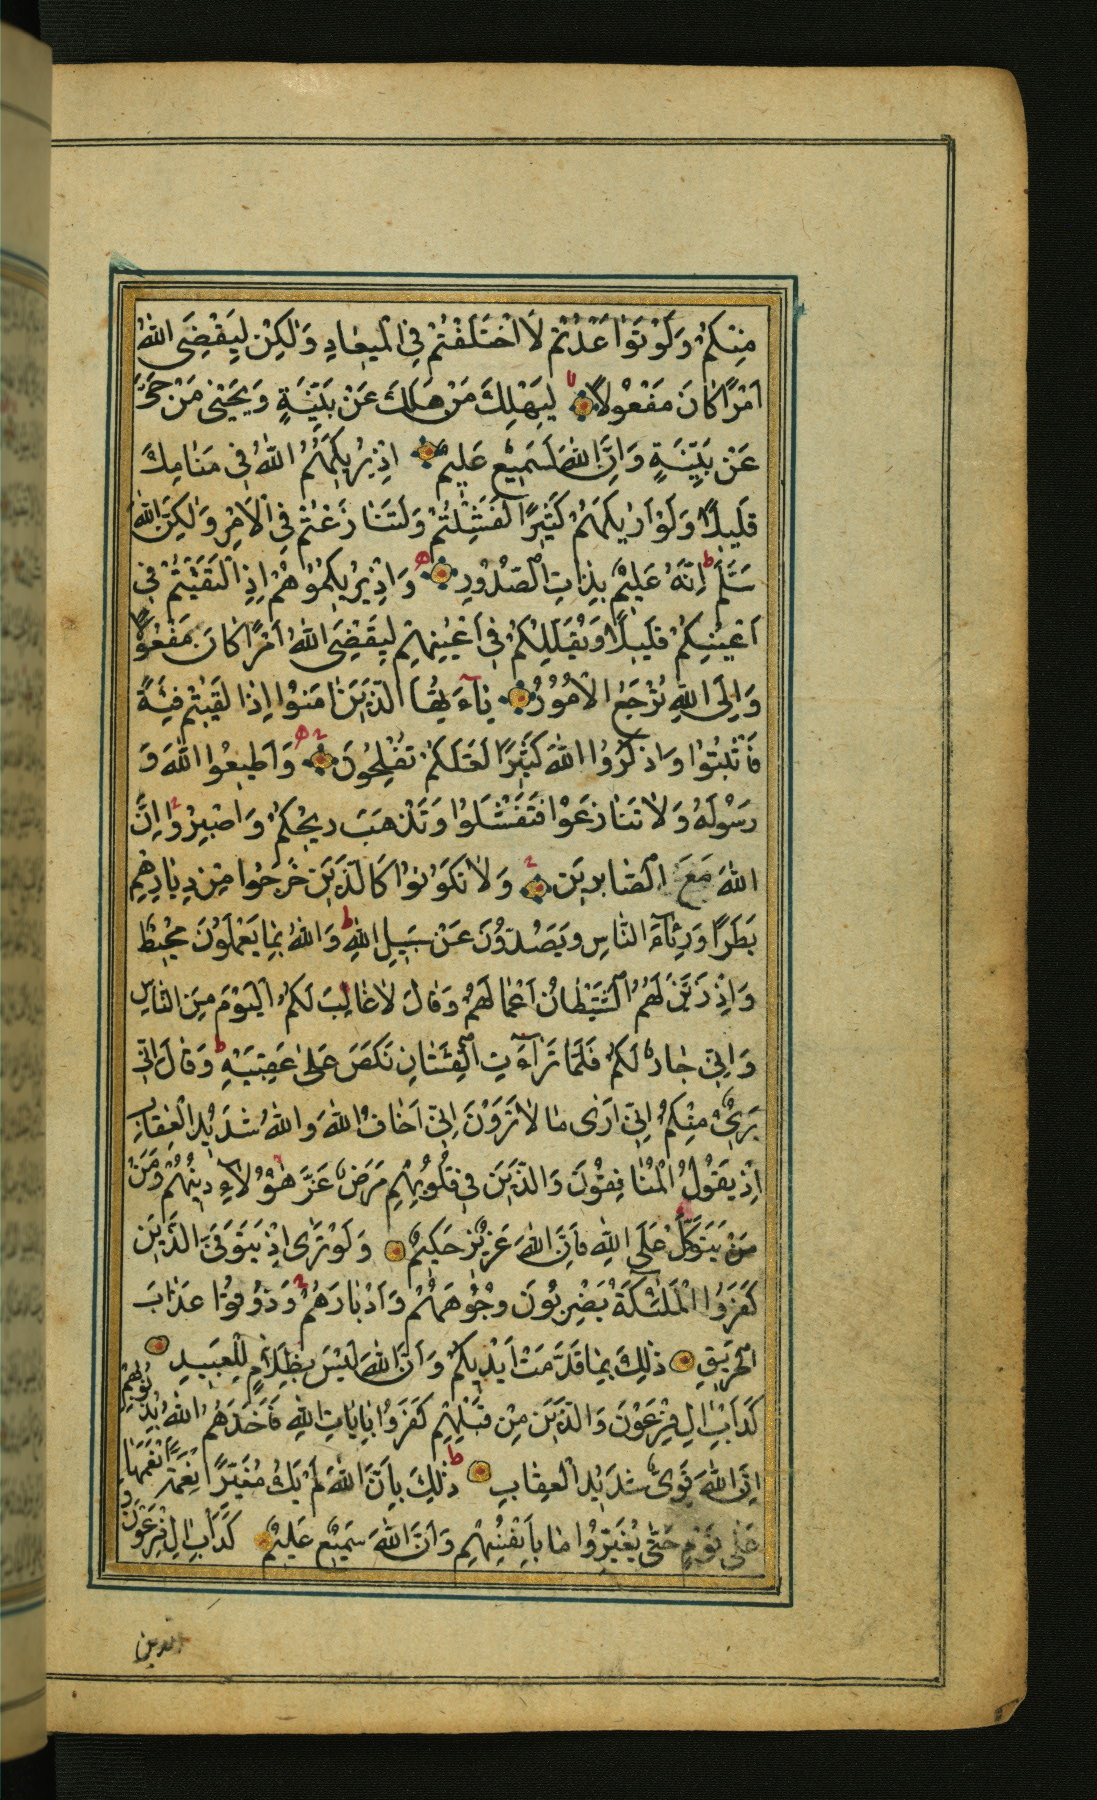 مِنْكُمْ وَلَوْ تَوَاعَدْتُمْ لَاخْتَلَفْتُمْ فِي الْمِيعَادِ وَلٰكِنْ لِيَقْضِيَ اللّٰهُ
اَمْرًا كَانَ مَفْعُولًا لِيَهْلِكَ مَنْ هَلَكَ عَنْ بَيِّنَةٍ وَيَحْيٰى مَنْ حَيَّ
عَنْ بَيِّنَةٍ وَاِنَّ اللّٰهَ لَسَمِيعٌ عَلِيمٌ اِذْ يُرِيكَهُمُ اللّٰهُ فِي مَنَامِكَ
قَلِيلًا وَلَوْ اَرٰيكَهُمْ كَثِيرًا لَفَشِلْتُمْ وَلَتَنَازَعْتُمْ فِي الْاَمْرِ وَلٰكِنَّ اللّٰهَ
سَلَّمَ ط اِنَّهُ عَلِيمٌ بِذَاتِ الصُّدُورِ وَاِذْ يُرِيكُمُوهُمْ اِذِ الْتَقَيْتُمْ فِي
اَعْيُنِكُمْ قَلِيلًا وَيُقَلِّلُكُمْ فِي اَعْيُنِهِمْ لِيَقْضِيَ اللّٰهُ اَمْرًا كَانَ مَفْعُولًا
وَاِلَى اللّٰهِ تُرْجَعُ الْاُمُورُ يَآءَيُّهَا الَّذِينَ اٰمَنُوا اِذَا لَقِيتُمْ فِئَةً
فَاثْبُتُوا وَاذْكُرُوا اللّٰهَ كَثِيرًا لَعَلَّكُمْ تُفْلِحُونَ وَاَطِيعُوا اللّٰهَ وَ
رَسُولَهُ وَلَا تَنَازَعُوا فَتَفْشَلُوا وَتَذْهَبَ رِيحُكُمْ وَاصْبِرُوا اِنَّ
اللّٰهَ مَعَ الصَّابِرِينَ وَلَا تَكُونُوا كَالَّذِينَ خَرَجُوا مِنْ دِيَارِهِمْ
بَطَرًا وَرِئَآءَ النَّاسِ وَيَصُدُّونَ عَنْ سَبِيلِ اللّٰهِ ط وَاللّٰهُ بِمَا يَعْمَلُونَ مُحِيطٌ
وَاِذْ زَيَّنَ لَهُمُ الشَّيْطَانُ اَعْمَالَهُمْ وَقَالَ لَا غَالِبَ لَكُمُ الْيَوْمَ مِنَ النَّاسِ
وَاِنِّي جَارٌ لَكُمْ فَلَمَّا تَرَآءَتِ الْفِئَتَانِ نَكَصَ عَلٰى عَقِبَيْهِ ط وَقَالَ اِنِّي
بَرِيٓءٌ مِنْكُمْ اِنِّي اَرٰى مَا لَا تَرَوْنَ اِنِّي اَخَافُ اللّٰهَ وَاللّٰهُ شَدِيدُ الْعِقَابِ
اِذْ يَقُولُ الْمُنَافِقُونَ وَالَّذِينَ فِي قُلُوبِهِمْ مَرَضٌ غَرَّ هٰؤُلَآءِ دِينُهُمْ وَمَنْ
مَنْ يَتَوَكَّلْ عَلَى اللّٰهِ فَاِنَّ اللّٰهَ عَزِيزٌ حَكِيمٌ وَلَوْ تَرٰى اِذْ يَتَوَفَّى الَّذِينَ
كَفَرُوا الْمَلٰٓئِكَةُ يَضْرِبُونَ وُجُوهَهُمْ وَاَدْبَارَهُمْ وَذُوقُوا عَذَابَ
الْحَرِيقِ ذٰلِكَ بِمَا قَدَّمَتْ اَيْدِيكُمْ وَاَنَّ اللّٰهَ لَيْسَ بِظَلَّامٍ لِلْعَبِيدِ
كَدَاْبِ اٰلِ فِرْعَوْنَ وَالَّذِينَ مِنْ قَبْلِهِمْ كَفَرُوا بِاٰيَاتِ اللّٰهِ فَاَخَذَهُمُ اللّٰهُ بِذُنُوبِهِمْ
اِنَّ اللّٰهَ قَوِيٌّ شَدِيدُ الْعِقَابِ ط ذٰلِكَ بِاَنَّ اللّٰهَ لَمْ يَكُ مُغَيِّرًا نِعْمَةً اَنْعَمَهَا
عَلٰى قَوْمٍ حَتّٰى يُغَيِّرُوا مَا بِاَنْفُسِهِمْ وَاَنَّ اللّٰهَ سَمِيعٌ عَلِيمٌ كَدَاْبِ اٰلِ فِرْعَوْنَ وَ
الذين